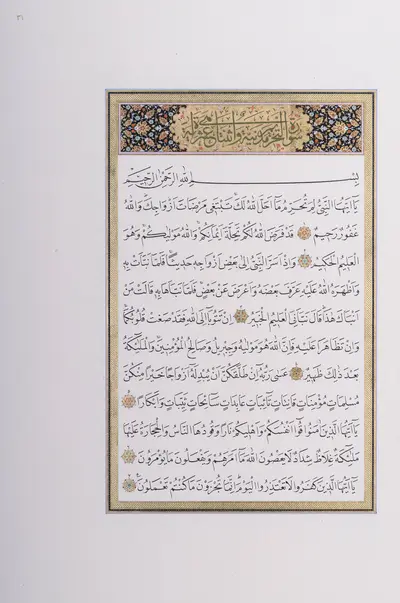 سورة التحريم مدنية واثنتا عشرة آية
بِسْمِ اللّٰهِ الرَّحْمٰنِ الرَّحِيمِ
يَا اَيُّهَا النَّبِيُّ لِمَ تُحَرِّمُ مَا اَحَلَّ اللّٰهُ لَكَ تَبْتَغِي مَرْضَاتَ اَزْوَاجِكَ وَاللّٰهُ
غَفُورٌ رَحِيمٌ قَدْ فَرَضَ اللّٰهُ لَكُمْ تَحِلَّةَ اَيْمَانِكُمْ وَاللّٰهُ مَوْلٰيكُمْ وَهُوَ
الْعَلِيمُ الْحَكِيمُ وَاِذْ اَسَرَّ النَّبِيُّ اِلٰى بَعْضِ اَزْوَاجِهِ حَدِيثًا فَلَمَّا نَبَّاَتْ بِهِ
وَاَظْهَرَهُ اللّٰهُ عَلَيْهِ عَرَّفَ بَعْضَهُ وَاَعْرَضَ عَنْ بَعْضٍ فَلَمَّا نَبَّاَهَا بِهِ قَالَتْ مَنْ
اَنْبَاَكَ هٰذَا قَالَ نَبَّاَنِيَ الْعَلِيمُ الْخَبِيرُ اِنْ تَتُوبَا اِلَى اللّٰهِ فَقَدْ صَغَتْ قُلُوبُكُمَا
وَاِنْ تَظَاهَرَا عَلَيْهِ فَاِنَّ اللّٰهَ هُوَ مَوْلٰيهُ وَجِبْرِيلُ وَصَالِحُ الْمُؤْمِنِينَ وَالْمَلٰئِكَةُ
بَعْدَ ذٰلِكَ ظَهِيرٌ عَسٰى رَبُّهُ اِنْ طَلَّقَكُنَّ اَنْ يُبْدِلَهُ اَزْوَاجًا خَيْرًا مِنْكُنَّ
مُسْلِمَاتٍ مُؤْمِنَاتٍ قَانِتَاتٍ تَائِبَاتٍ عَابِدَاتٍ سَائِحَاتٍ ثَيِّبَاتٍ وَاَبْكَارًا
يَا اَيُّهَا الَّذِينَ اٰمَنُوا قُوا اَنْفُسَكُمْ وَاَهْلِيكُمْ نَارًا وَقُودُهَا النَّاسُ وَالْحِجَارَةُ عَلَيْهَا
مَلٰئِكَةٌ غِلَاظٌ شِدَادٌ لَا يَعْصُونَ اللّٰهَ مَا اَمَرَهُمْ وَيَفْعَلُونَ مَا يُؤْمَرُونَ
يَا اَيُّهَا الَّذِينَ كَفَرُوا لَا تَعْتَذِرُوا الْيَوْمَ اِنَّمَا تُجْزَوْنَ مَا كُنْتُمْ تَعْمَلُونَ